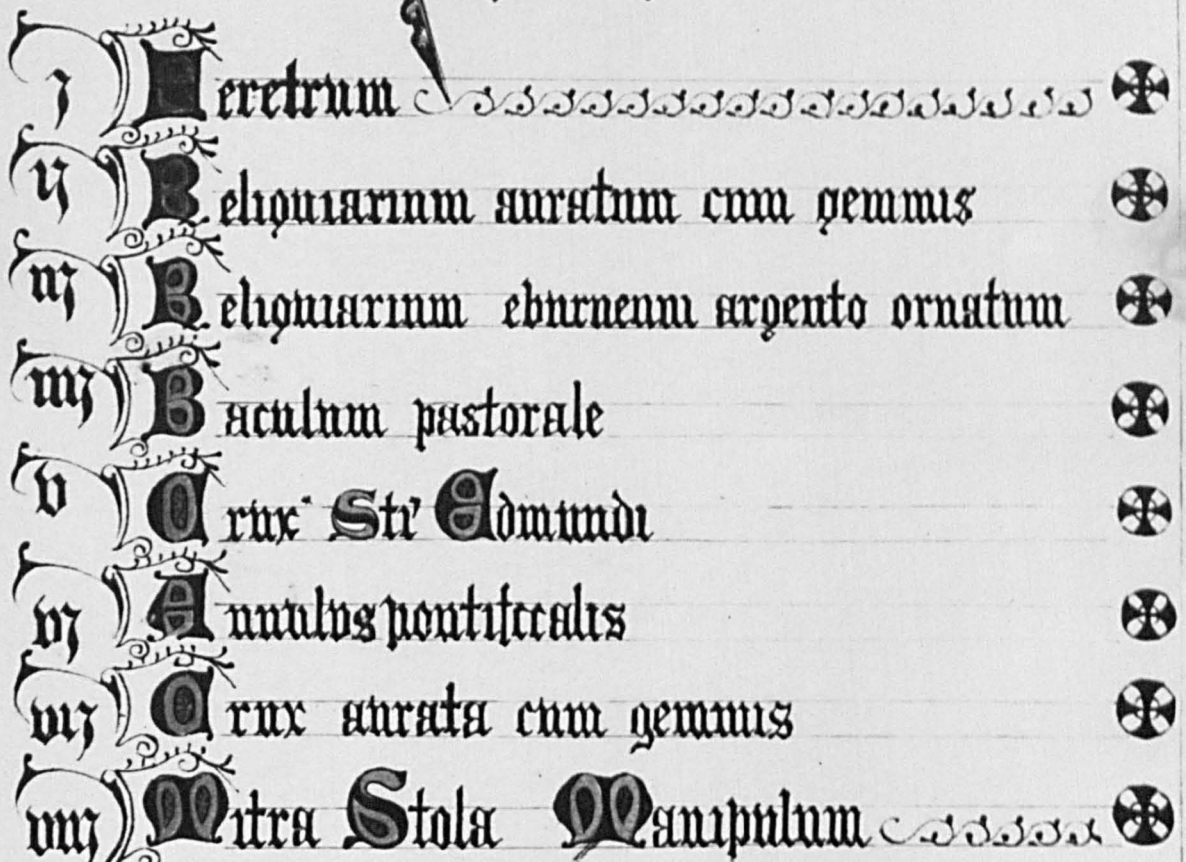 j Feretrum
ij Reliquiarium auratum cum gemmis
iij Reliquiarium eburneum argento ornatum
iiij Baculum pastorale
v Crux Sti Edmundi
vj Annulus pontificalis
vij Crux aurata cum gemmis
viij Mitra Stola Manipulum